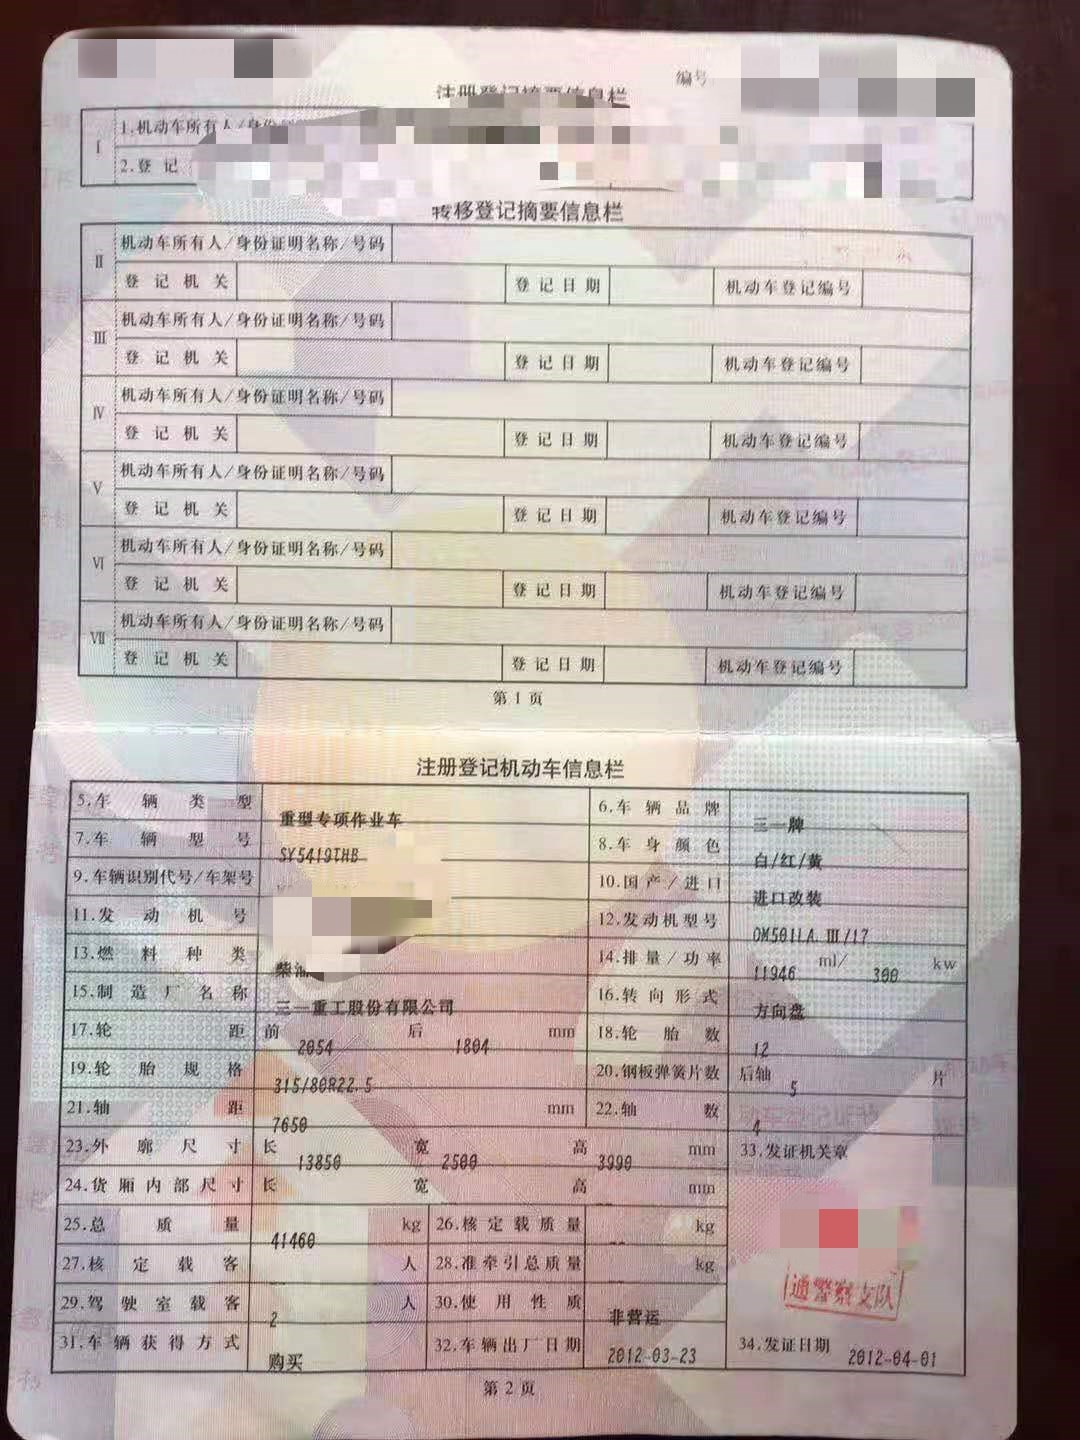 编号
注册登记摘要信息栏
Ⅰ 1.机动车所有人/身份
2.登记
转移登记摘要信息栏
Ⅱ 机动车所有人/身份证明名称/号码
登记机关 登记日期 机动车登记编号
Ⅲ 机动车所有人/身份证明名称/号码
登记机关 登记日期 机动车登记编号
Ⅳ 机动车所有人/身份证明名称/号码
登记机关 登记日期 机动车登记编号
Ⅴ 机动车所有人/身份证明名称/号码
登记机关 登记日期 机动车登记编号
Ⅵ 机动车所有人/身份证明名称/号码
登记机关 登记日期 机动车登记编号
Ⅶ 机动车所有人/身份证明名称/号码
登记机关 登记日期 机动车登记编号
第1页
注册登记机动车信息栏
5.车辆类型 重型专项作业车 6.车辆品牌 三一牌
7.车辆型号 SY5419THB 8.车身颜色 白/红/黄
9.车辆识别代号/车架号 10.国产/进口 进口改装
11.发动机号 12.发动机型号 OM501LA.Ⅲ/17
13.燃料种类 柴油 14.排量/功率 11946 ml/ 300 kw
15.制造厂名称 三一重工股份有限公司 16.转向形式 方向盘
17.轮距 前 2054 后 1804 mm 18.轮胎数 12
19.轮胎规格 315/80R22.5 20.钢板弹簧片数 后轴 5 片
21.轴距 7650 mm 22.轴数 4
23.外廓尺寸 长 13850 宽 2500 高 3990 mm 33.发证机关章
24.货厢内部尺寸 长 宽 高 mm
25.总质量 41460 kg 26.核定载质量 -- kg
27.核定载客 -- 人 28.准牵引总质量 -- kg
通警察支队
29.驾驶室载客 2 人 30.使用性质 非营运
31.车辆获得方式 购买 32.车辆出厂日期 2012-03-23 34.发证日期 2012-04-01
第2页